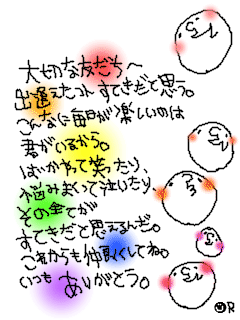 大切な友だち〜
出逢えたコト すてきだと思う。
こんなに毎日が楽しいのは
君がいるから。
ばかやって笑ったり、
悩みまくって泣いたり、
その全てが
すてきだと思えるんだ。
これからも仲良くしてね。
いつも ありがとう。